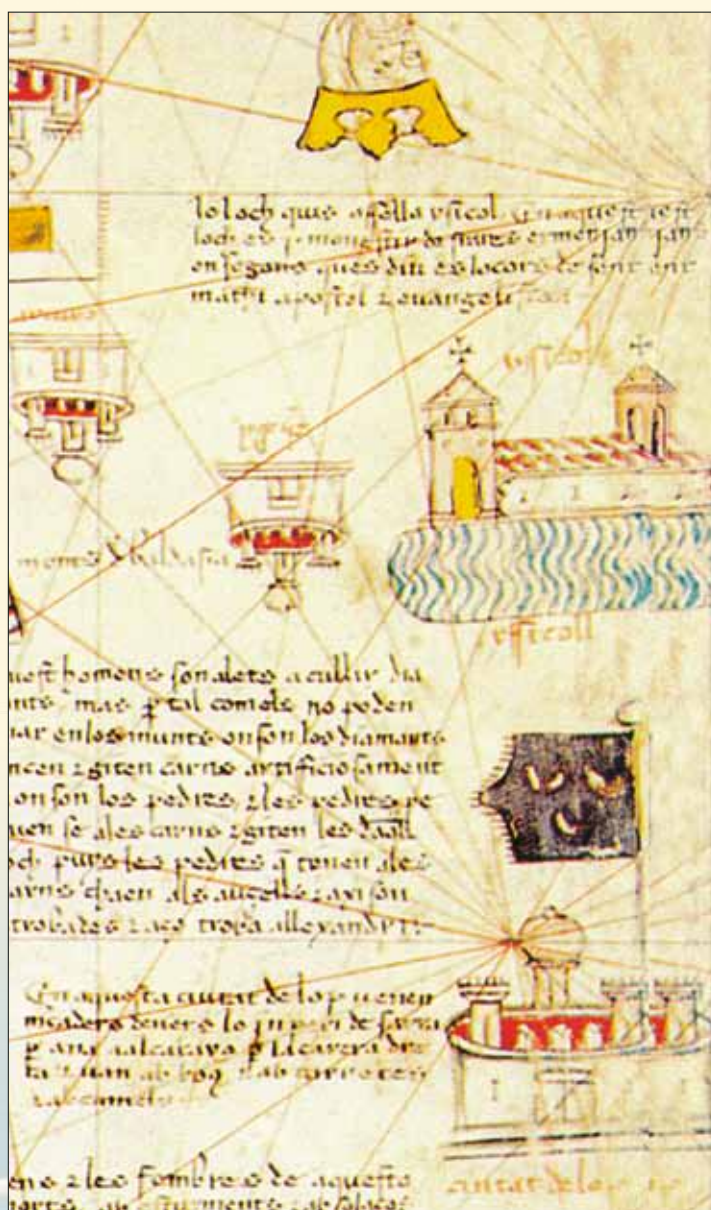 lo loch quis apella ysicol En aquest
loch es .i. monestir de frares ermenians
on segons ques diu es lo cors de sent
mathi apostol z euangelista
ysicoll
monts d baldasia
yssicoll
uest homens son alets a cullir dia
ants mas p tal com els no poden
nar en los munts on son los diamants
ncen z giten carns artificiosament
on son los pedres z les pedres pe
uen se a les carns z giten les dall
och puys les pedres q tenen a les
arns chaen als aucells z axi son
trobades z aço troba allexandri
En aquesta ciutat de lop venen
mcaders deuers lo inperi de sarra
p anar al catayo
ta z uan ab boy z ab carretes
z ab camels
ens z les fembres de aquesta
morts ab esturments z ab solaços
ciutat de lop